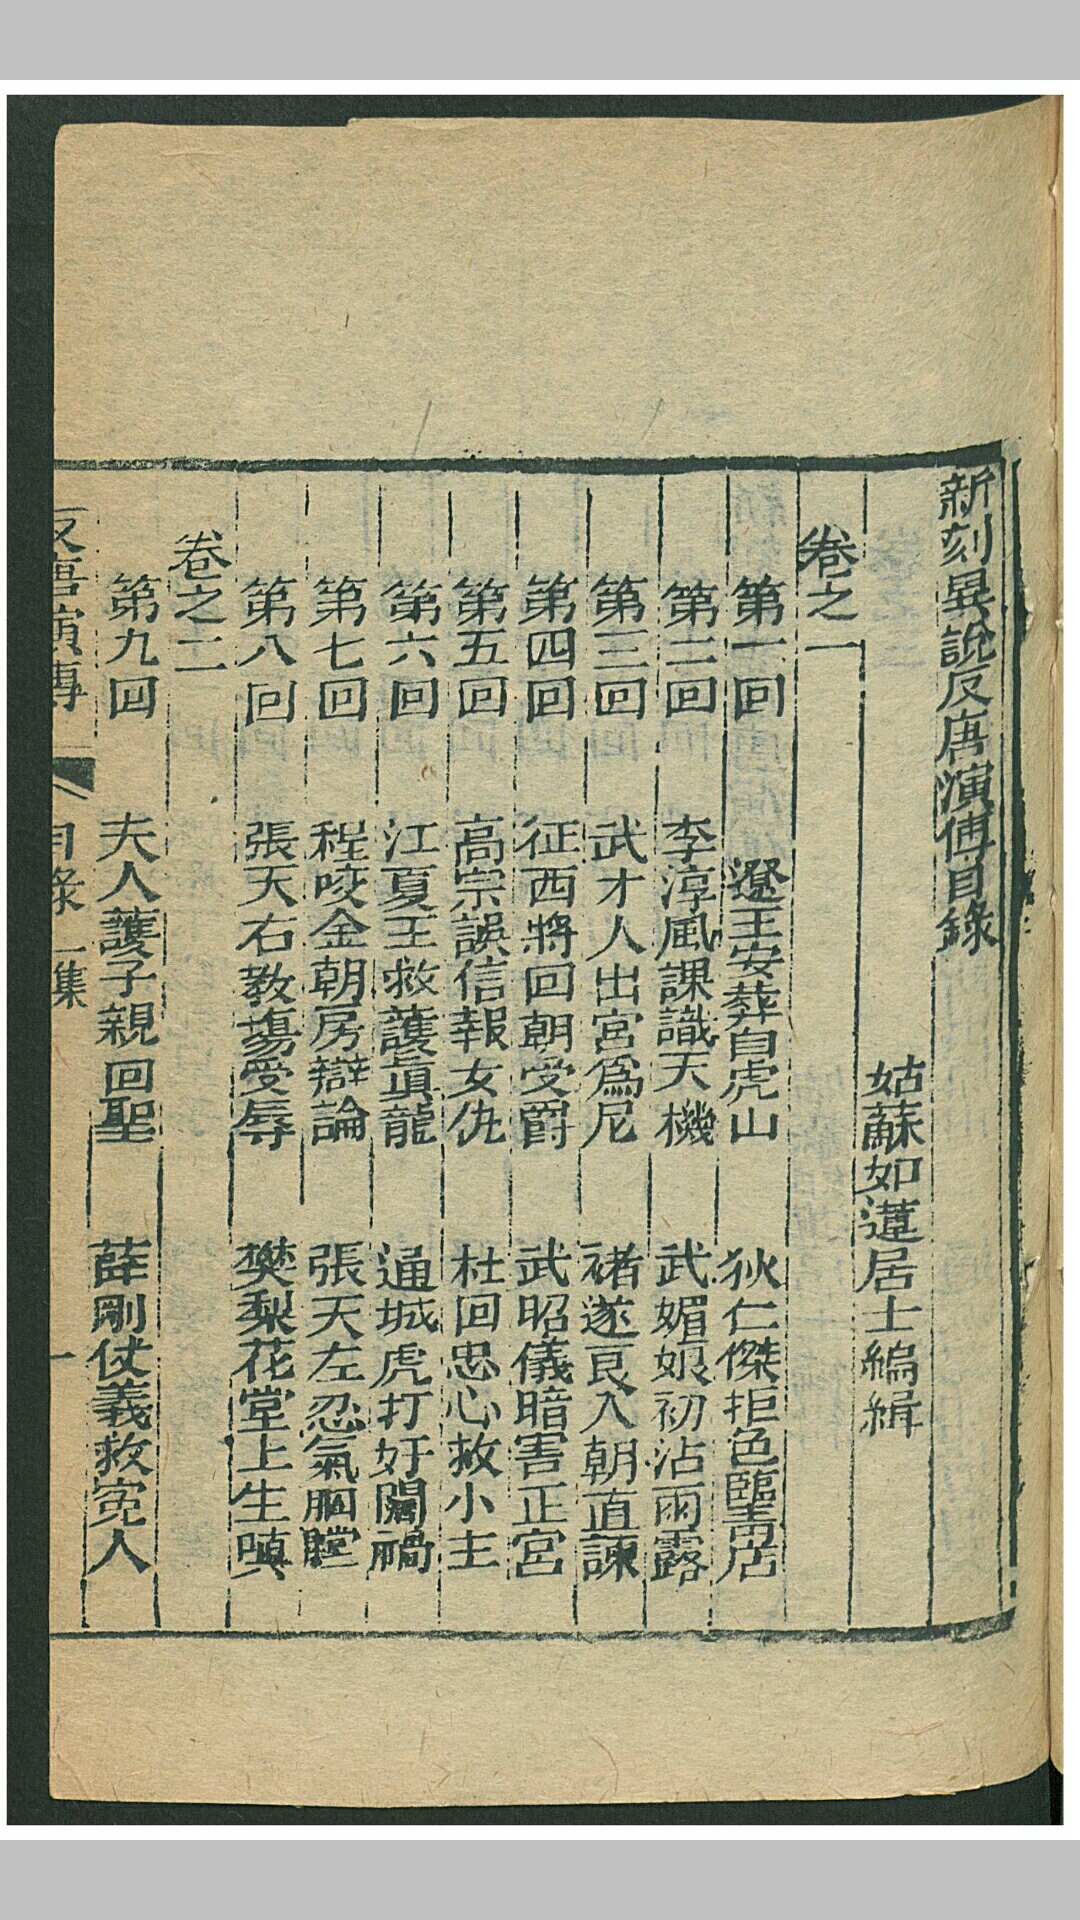 新刻異說反唐演傳目錄
姑蘇如蓮居士編緝
卷之一
第一回 遼王安葬自虎山 狄仁傑拒色臨清店
第二回 李淳風課識天機 武媚娘初沾雨露
第三回 武才人出宮爲尼 褚遂良入朝直諫
第四回 征西將回朝受爵 武昭儀暗害正宮
第五回 高宗誤信報女仇 杜回忠心救小主
第六回 江夏王救護眞龍 通城虎打奸闖禍
第七回 程咬金朝房辯論 張天左忍氣胸膛
第八回 張天右教場受辱 樊梨花堂上生嗔
卷之二
第九回 夫人護子親回聖 薛剛仗義救冤人
反唐演傳 目錄 一集 一